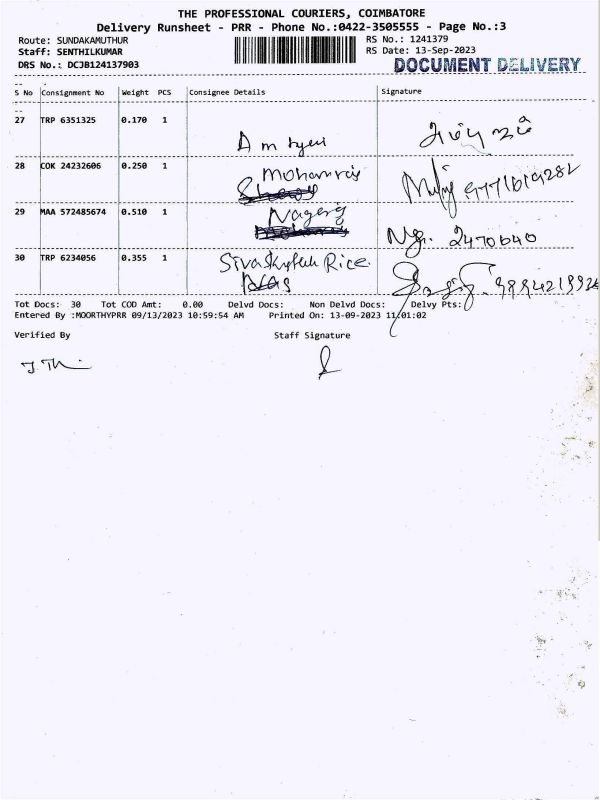 THE PROFESSIONAL COURIERS, COIMBATORE
Delivery Runsheet - PRR - Phone No.:0422-3505555 - Page No.:3
Route: SUNDAKAMUTHUR RS No.: 1241379
Staff: SENTHILKUMAR RS Date: 13-Sep-2023
DRS No.: DCJB124137903 DOCUMENT DELIVERY
S No Consignment No Weight PCS Consignee Details Signature
27 TRP 6351325 0.170 1
28 COK 24232606 0.250 1
Mohanraj
29 MAA 572485674 0.510 1
Nagaraj
Ng. 2470640
30 TRP 6234056 0.355 1
Rice
Tot Docs: 30 Tot COD Amt: 0.00 Delvd Docs: Non Delvd Docs: Delvy Pts:
Entered By :MOORTHYPRR 09/13/2023 10:59:54 AM Printed On: 13-09-2023 11:01:02
Verified By Staff Signature